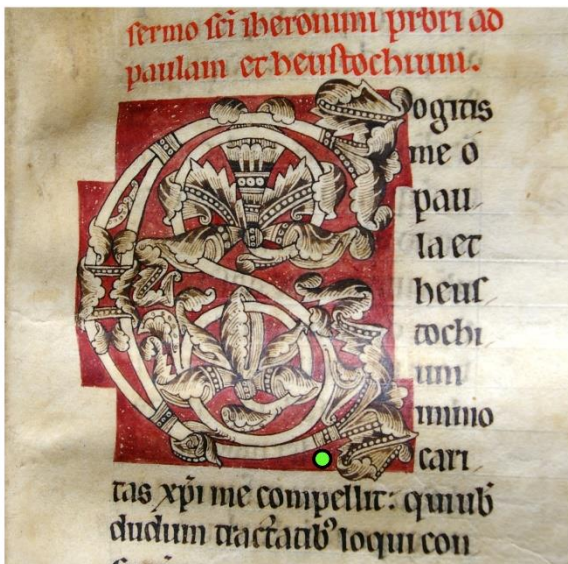 sermo sci iheronimi prbri ad
paulam et heustochium.
Cogitis
me o
pau
la et
heus
tochi
um
immo
cari
tas xpi me compellit: qui uob
dudum tractatib' loqui con